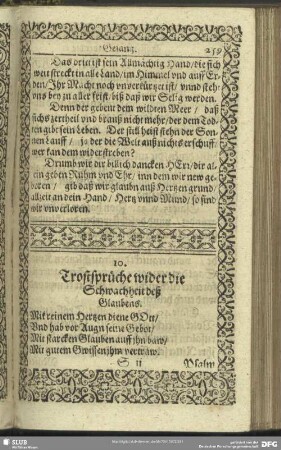 Gesang. 259
Das dritt ist sein Allmächtig Hand / die sich
weit streckt in alle Land / im Himmel vnd auff Er-
den / Ihr Macht noch vnverkürtzet ist / wird steh
vns bey zu aller frist / biß daß wir Selig werden.
Denn der gebeut dem wildten Meer / daß
sichs zertheil vnd brauß nicht mehr / der dem Tod-
ten gibt sein Leben. Der still heist stehn der Son-
nen Lauff / ja der die Welt auß nichts erschuff
wer kan dem widerstreben?
Drumb wir dir billich dancken HErr / dir al-
lein geben Ruhm vnd Ehr / inn dem wir new ge-
boren / gib daß wir glaubn auß Hertzen grund /
allzeit an dein Hand / Hertz vnnd Mund / so sind
wir vnverloren.
10.
Trostsprüche wider die
Schwachheit deß
Glaubens.
Mit reinem Hertzen diene GOtt /
Vnd hab vor Augn seine Gebot /
Mit starcken Glauben auff ihn baw /
Mit gutem Gwissen jhm vertraw.
S ij Psalm
SLUB
DFG